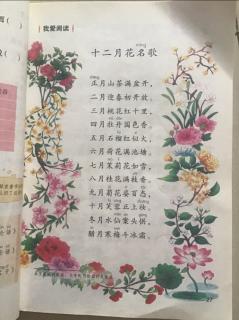 我爱阅读
十二月花名歌
正月山茶满盆开，
二月迎春初开放。
三月桃花红十里，
四月牡丹国色香。
五月石榴红似火，
六月荷花满池塘。
七月茉莉花如雪，
八月桂花满枝香。
九月菊花姿百态，
十月芙蓉正上妆。
冬月水仙案头供，
腊月寒梅斗冰霜。
27